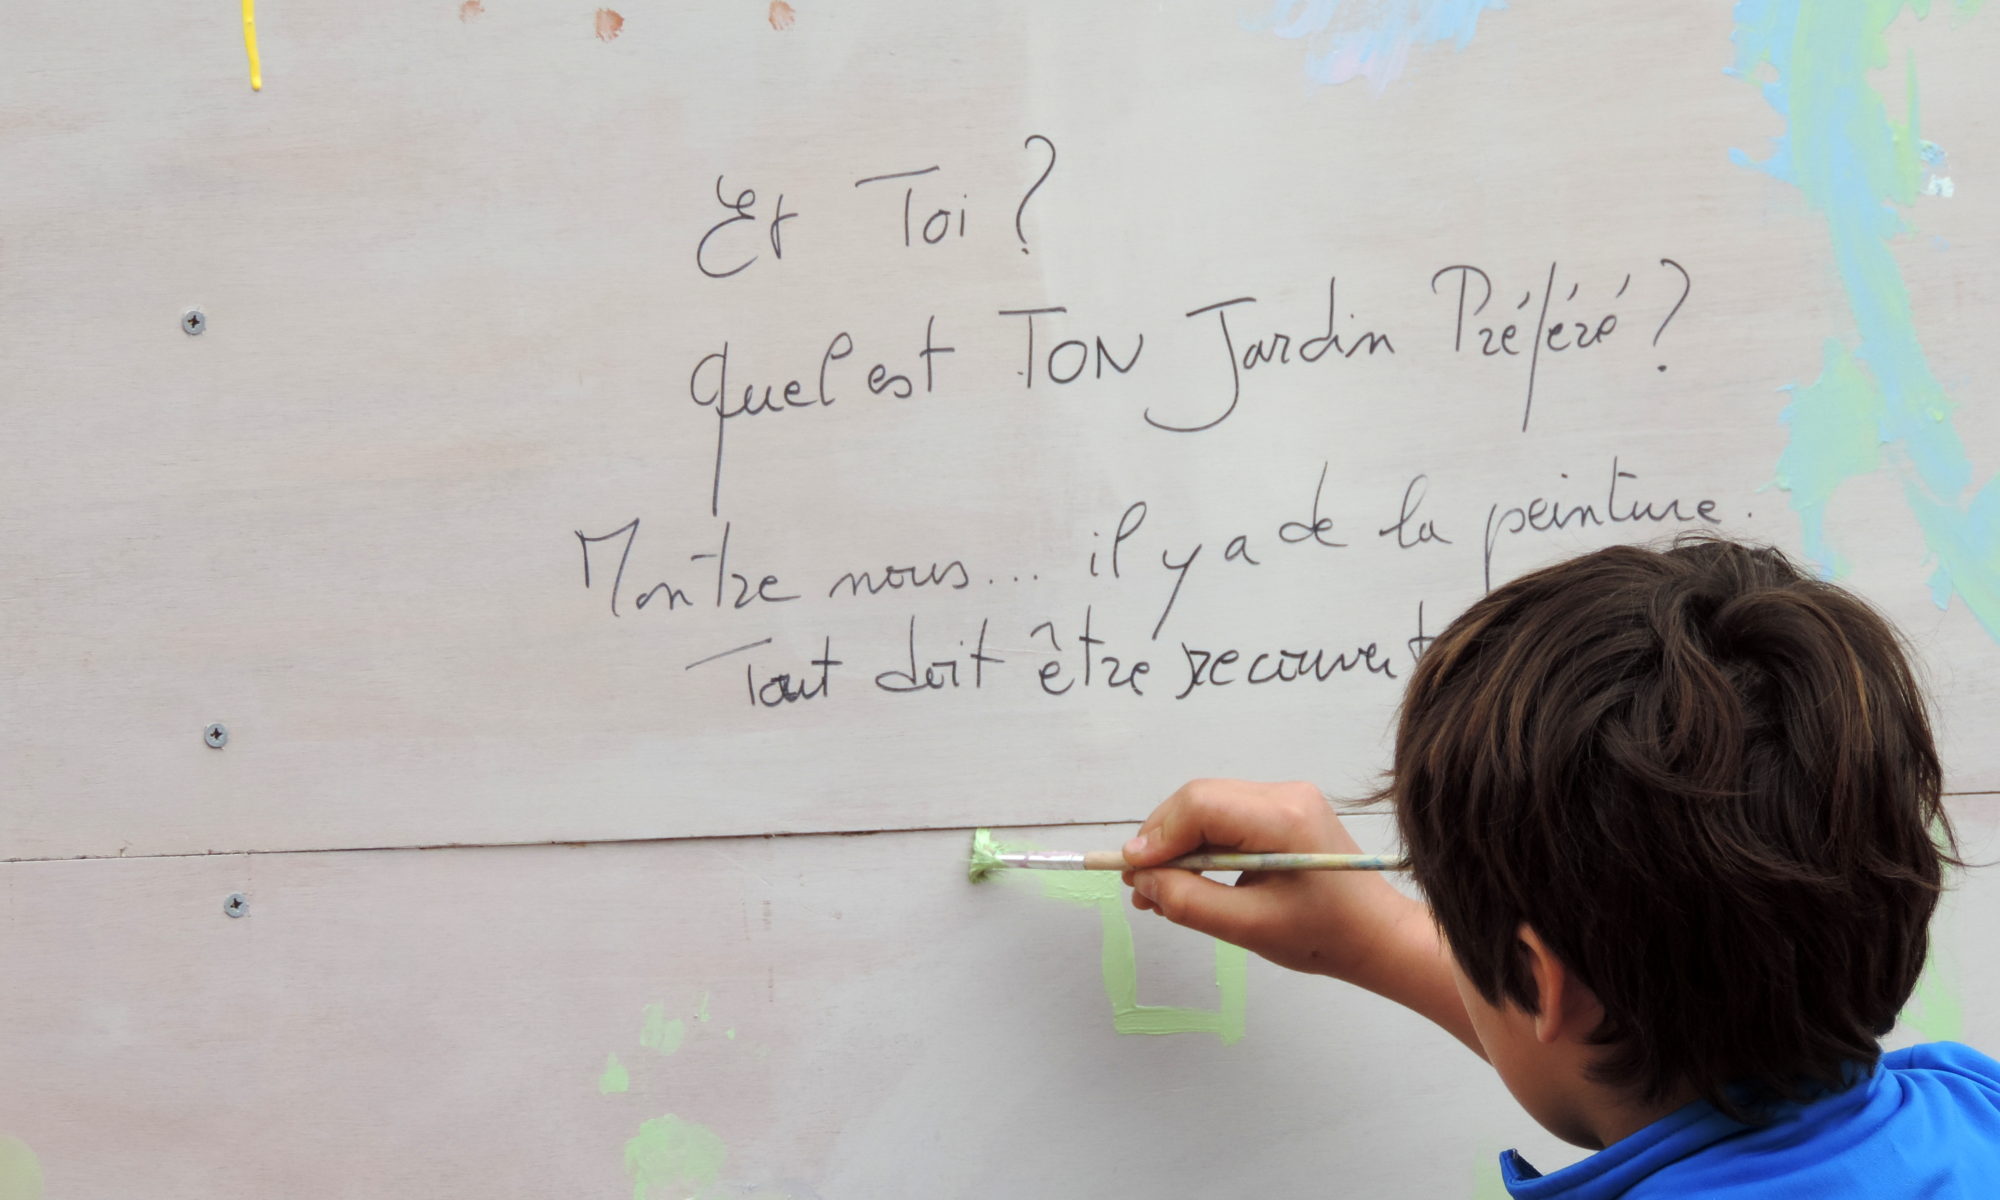 Et Toi ?
Quel est TON Jardin Préféré ?
Montre nous... il y a de la peinture.
Tout doit être recouvert